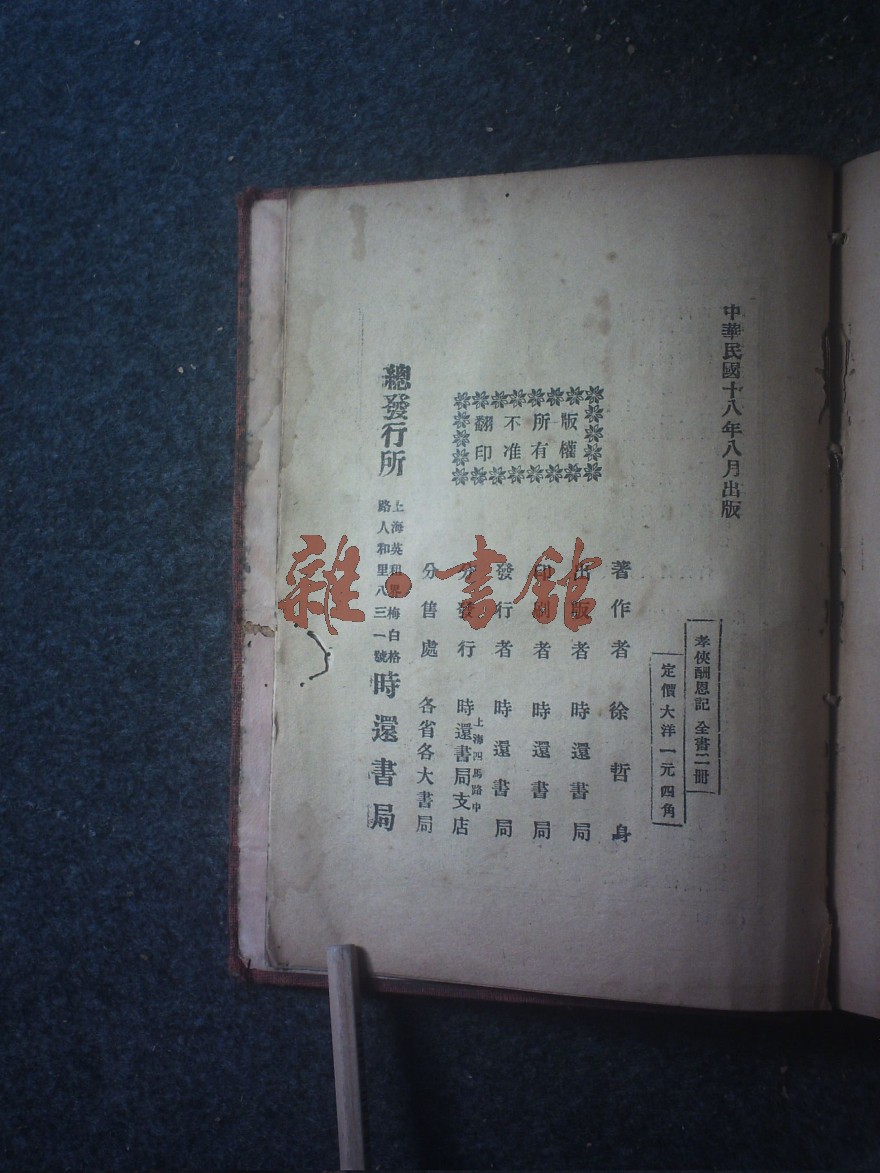 中華民國十八年八月出版
孝俠酬恩記 全書二冊
定價大洋一元四角
版權
所有
不准
翻印
著作者 徐哲身
出版者 時還書局
印刷者 時還書局
發行者 時還書局
分發行 上海四馬路中 時還書局支店
分售處 各省各大書局
總發行所 上海英租界梅白格路人和里八三一號 時還書局
雜·書館